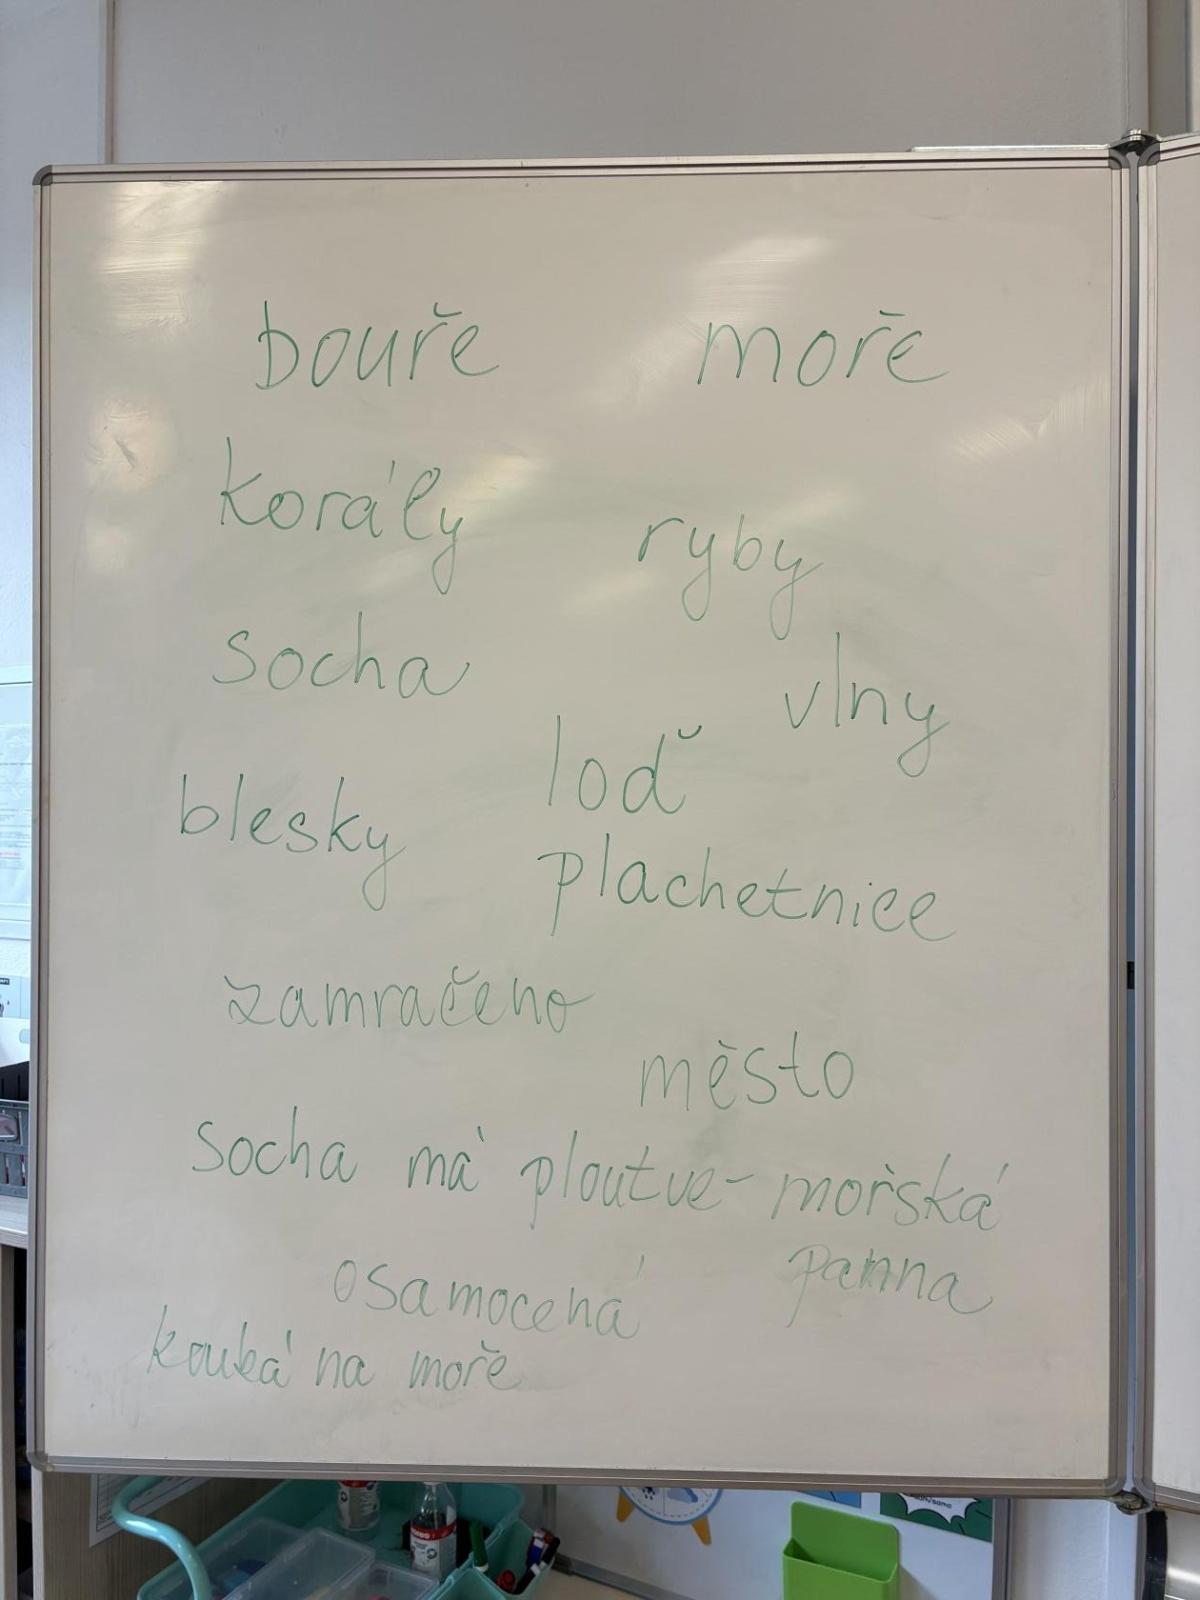 bouře moře
korály
ryby
socha
vlny
loď
blesky
plachetnice
zamračeno
město
socha má ploutve - mořská
panna
osamocená
kouká na moře